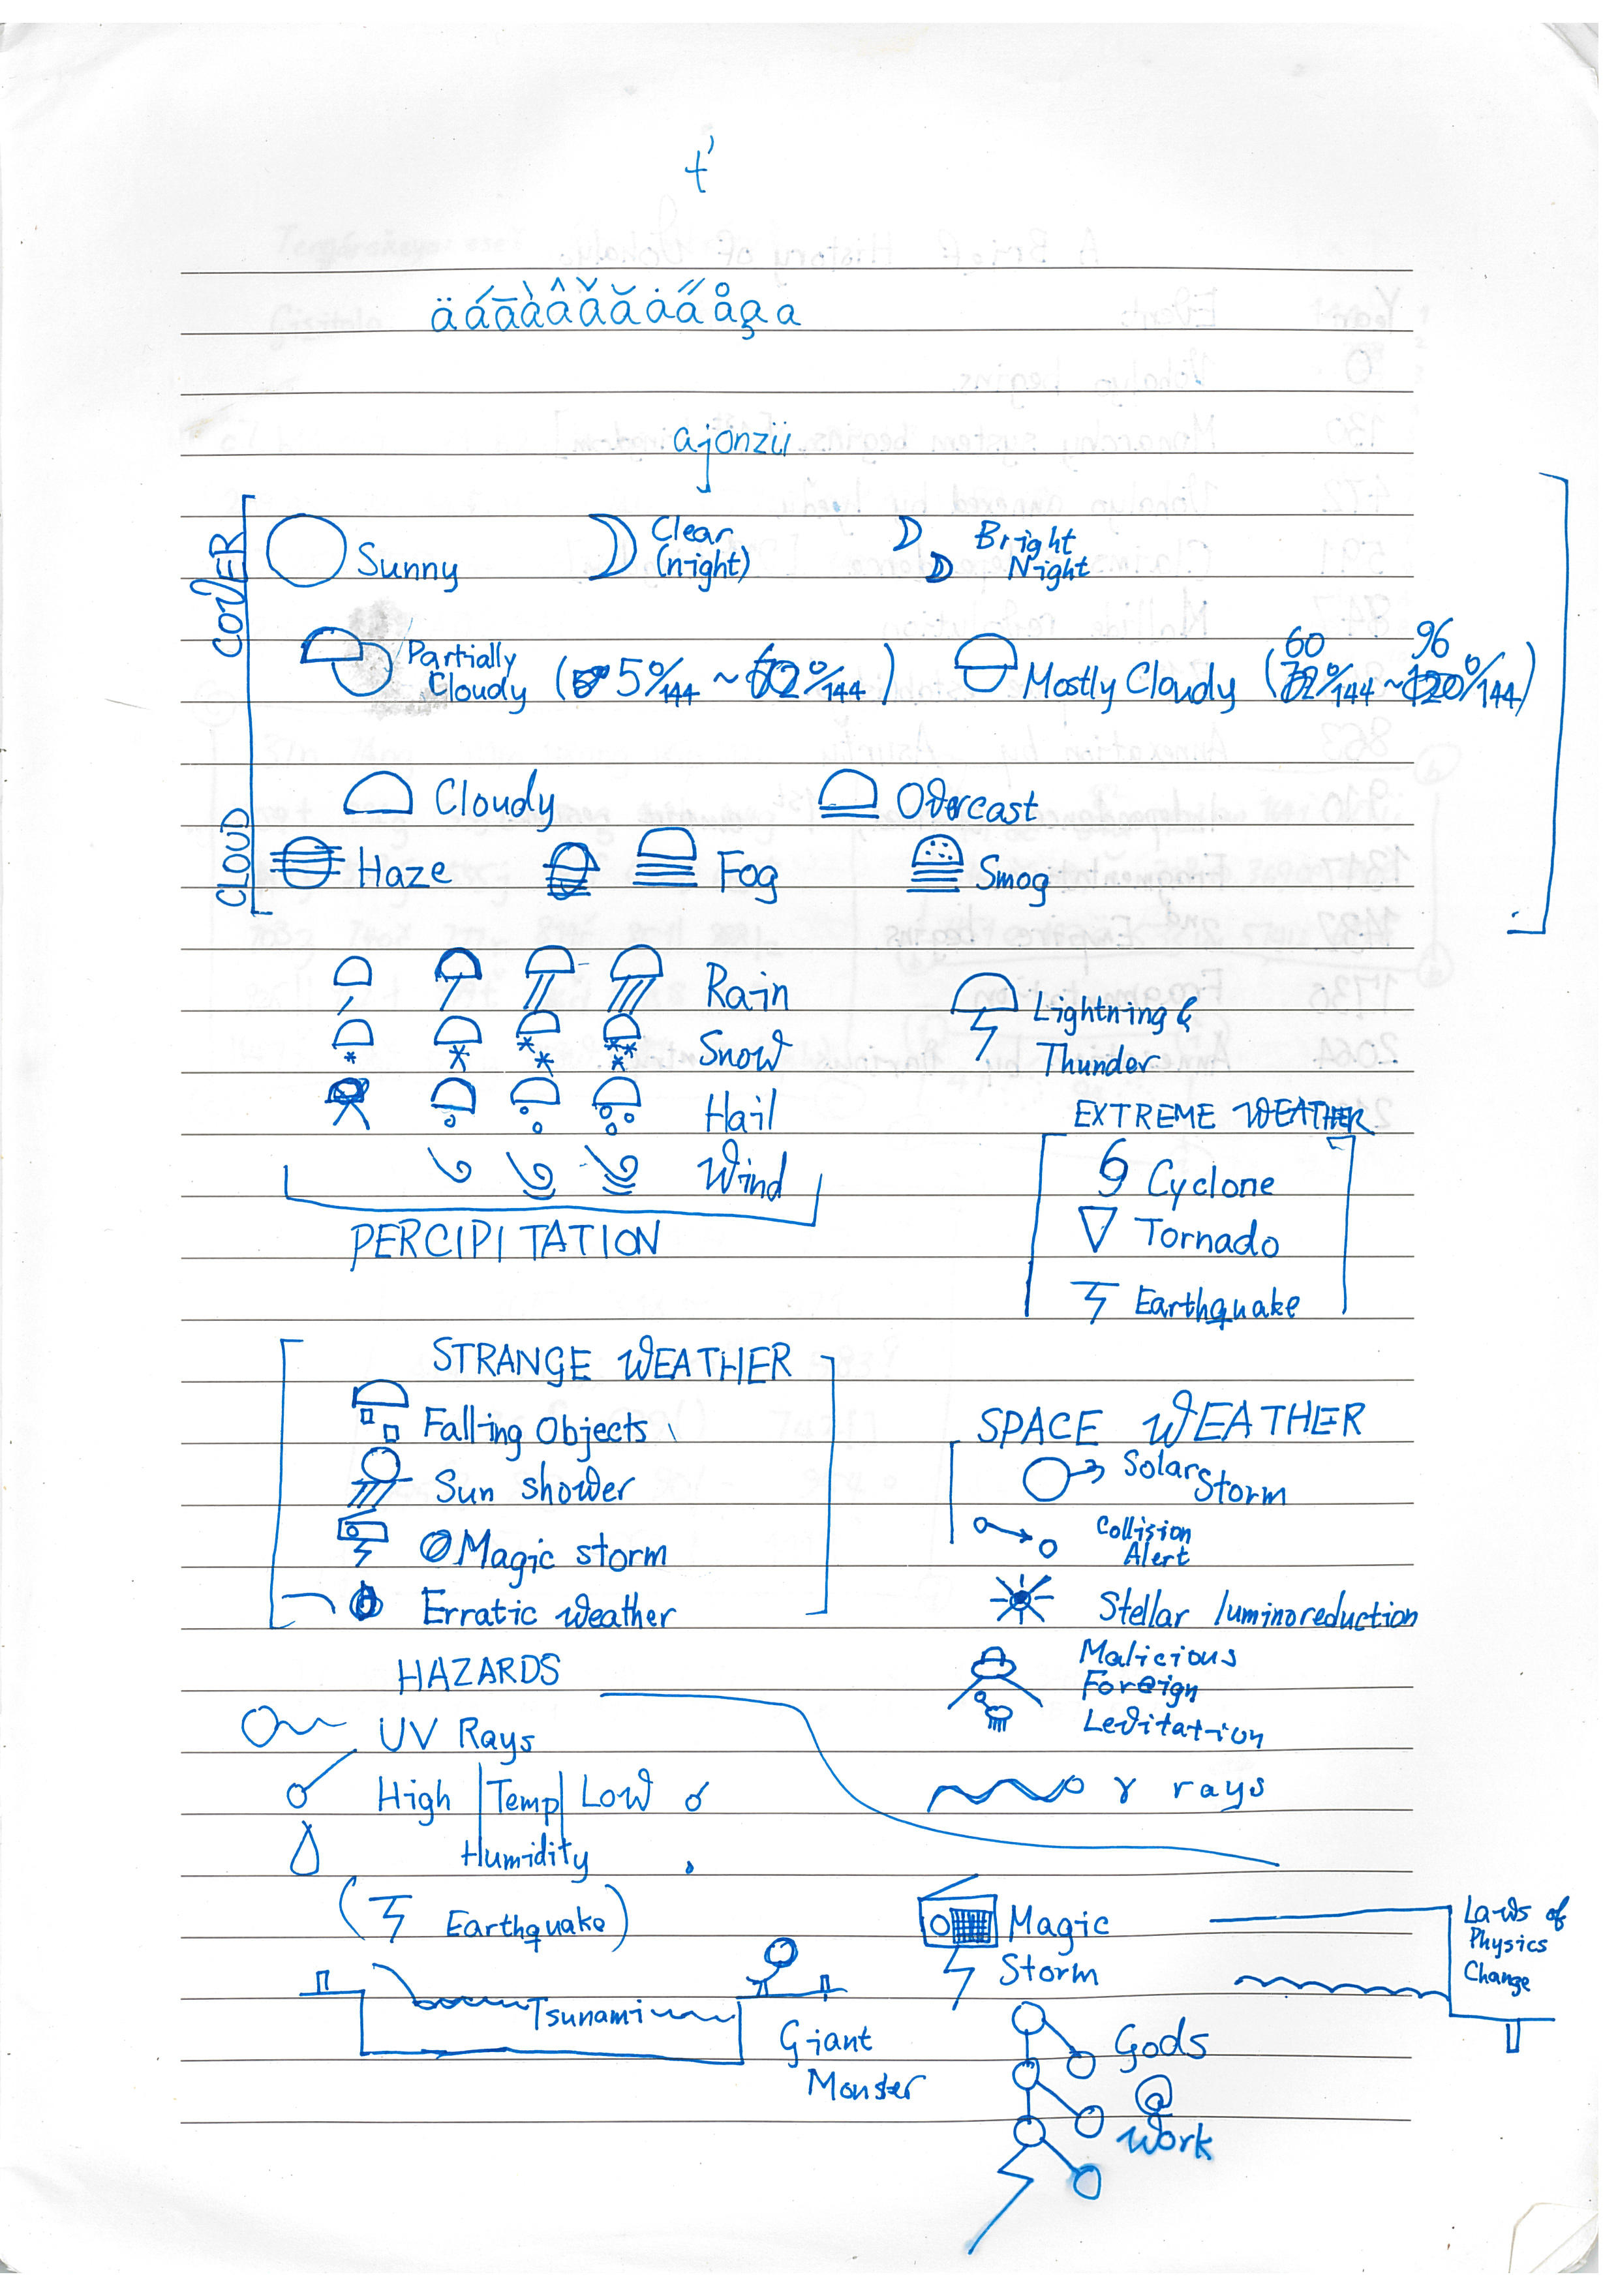 t'
äáāàâǎăȧa̋åa̧a
ajonzü
COVER
Sunny
Clear
(night)
Bright
Night
Partially
Cloudy (5%144 ~ %144)
60 96
Mostly Cloudy (72%144 ~ 120%144)
CLOUD
Cloudy
Overcast
Haze
Fog
Smog
Rain
Lightning &
Thunder
Snow
Hail
EXTREME WEATHER
Wind
Cyclone
PERCIPITATION
Tornado
Earthquake
STRANGE WEATHER
Falling Objects
SPACE WEATHER
Sun shower
Solar
Storm
Magic storm
Collision
Alert
Erratic weather
Stellar luminoreduction
HAZARDS
Malicious
Foreign
Levitation
UV Rays
High | Temp | Low
γ rays
Humidity
(Earthquake)
Magic
Storm
Laws of
Physics
Change
Tsunami
Giant
Monster
Gods
@
Work